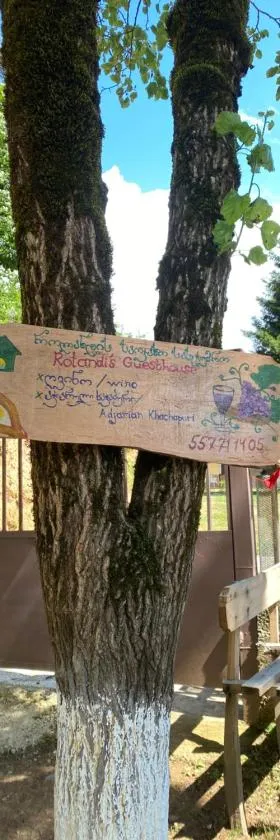 როლანდის საოჯახო სასტუმრო
Rolandi's Guesthouse
xღვინო / wino
xაჭარული ხაჭაპური/
Adjarian Khachapuri
557711405